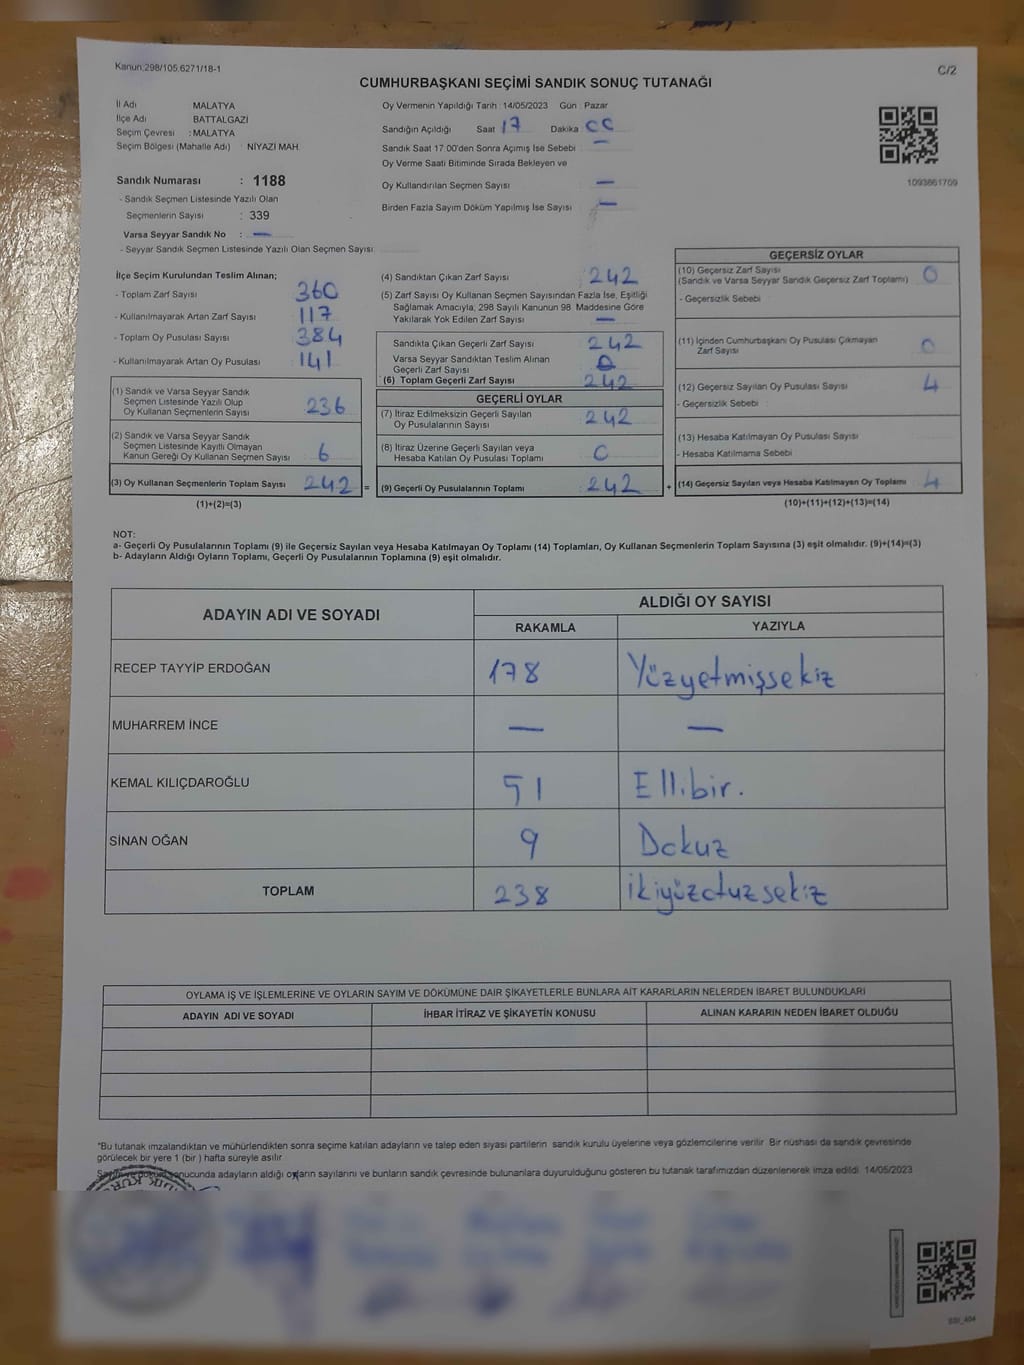 Kanun:298/105,6271/18-1
C/2
CUMHURBAŞKANI SEÇİMİ SANDIK SONUÇ TUTANAĞI
İl Adı MALATYA
İlçe Adı BATTALGAZİ
Seçim Çevresi : MALATYA
Seçim Bölgesi (Mahalle Adı) : NİYAZİ MAH
Oy Vermenin Yapıldığı Tarih : 14/05/2023 Gün : Pazar
Sandığın Açıldığı Saat 17 Dakika 00
Sandık Saat 17:00'den Sonra Açımış İse Sebebi —
Oy Verme Saati Bitiminde Sırada Bekleyen ve
Oy Kullandırılan Seçmen Sayısı —
Birden Fazla Sayım Döküm Yapılmış İse Sayısı —
1093861709
Sandık Numarası : 1188
- Sandık Seçmen Listesinde Yazılı Olan
Seçmenlerin Sayısı : 339
Varsa Seyyar Sandık No : —
- Seyyar Sandık Seçmen Listesinde Yazılı Olan Seçmen Sayısı:
İlçe Seçim Kurulundan Teslim Alınan;
- Toplam Zarf Sayısı 360
- Kullanılmayarak Artan Zarf Sayısı 117
- Toplam Oy Pusulası Sayısı 384
- Kullanılmayarak Artan Oy Pusulası 141
(1) Sandık ve Varsa Seyyar Sandık
Seçmen Listesinde Yazılı Olup
Oy Kullanan Seçmenlerin Sayısı 236
(2) Sandık ve Varsa Seyyar Sandık
Seçmen Listesinde Kayıtlı Olmayan
Kanun Gereği Oy Kullanan Seçmen Sayısı 6
(3) Oy Kullanan Seçmenlerin Toplam Sayısı 242 =
(1)+(2)=(3)
(4) Sandıktan Çıkan Zarf Sayısı 242
(5) Zarf Sayısı Oy Kullanan Seçmen Sayısından Fazla İse, Eşitliği
Sağlamak Amacıyla, 298 Sayılı Kanunun 98. Maddesine Göre
Yakılarak Yok Edilen Zarf Sayısı —
Sandıkla Çıkan Geçerli Zarf Sayısı 242
Varsa Seyyar Sandıktan Teslim Alınan
Geçerli Zarf Sayısı 0
(6) Toplam Geçerli Zarf Sayısı 242
GEÇERLİ OYLAR
(7) İtiraz Edilmeksizin Geçerli Sayılan
Oy Pusulalarının Sayısı 242
(8) İtiraz Üzerine Geçerli Sayılan veya
Hesaba Katılan Oy Pusulası Toplamı 0
(9) Geçerli Oy Pusulalarının Toplamı 242 +
GEÇERSİZ OYLAR
(10) Geçersiz Zarf Sayısı 0
(Sandık ve Varsa Seyyar Sandık Geçersiz Zarf Toplamı)
- Geçersizlik Sebebi
(11) İçinden Cumhurbaşkanı Oy Pusulası Çıkmayan
Zarf Sayısı 0
(12) Geçersiz Sayılan Oy Pusulası Sayısı 4
- Geçersizlik Sebebi
(13) Hesaba Katılmayan Oy Pusulası Sayısı
- Hesaba Katılmama Sebebi
(14) Geçersiz Sayılan veya Hesaba Katılmayan Oy Toplamı 4
(10)+(11)+(12)+(13)=(14)
NOT:
a- Geçerli Oy Pusulalarının Toplamı (9) ile Geçersiz Sayılan veya Hesaba Katılmayan Oy Toplamı (14) Toplamları, Oy Kullanan Seçmenlerin Toplam Sayısına (3) eşit olmalıdır. (9)+(14)=(3)
b- Adayların Aldığı Oyların Toplamı, Geçerli Oy Pusulalarının Toplamına (9) eşit olmalıdır.
ADAYIN ADI VE SOYADI
ALDIĞI OY SAYISI
RAKAMLA YAZIYLA
RECEP TAYYİP ERDOĞAN 178 Yüzyetmişsekiz
MUHARREM İNCE — —
KEMAL KILIÇDAROĞLU 51 Ellibir.
SİNAN OĞAN 9 Dokuz
TOPLAM 238 ikiyüzotuzsekiz
OYLAMA İŞ VE İŞLEMLERİNE VE OYLARIN SAYIM VE DÖKÜMÜNE DAİR ŞİKAYETLERLE BUNLARA AİT KARARLARIN NELERDEN İBARET BULUNDUKLARI
ADAYIN ADI VE SOYADI İHBAR İTİRAZ VE ŞİKAYETİN KONUSU ALINAN KARARIN NEDEN İBARET OLDUĞU
*Bu tutanak imzalandıktan ve mühürlendikten sonra seçime katılan adayların ve talep eden siyasi partilerin sandık kurulu üyelerine veya gözlemcilerine verilir. Bir nüshası da sandık çevresinde
görülecek bir yere 1 (bir) hafta süreyle asılır.
sonucunda adayların aldığı oyların sayılarını ve bunların sandık çevresinde bulunanlara duyurulduğunu gösteren bu tutanak tarafımızdan düzenlenerek imza edildi. 14/05/2023